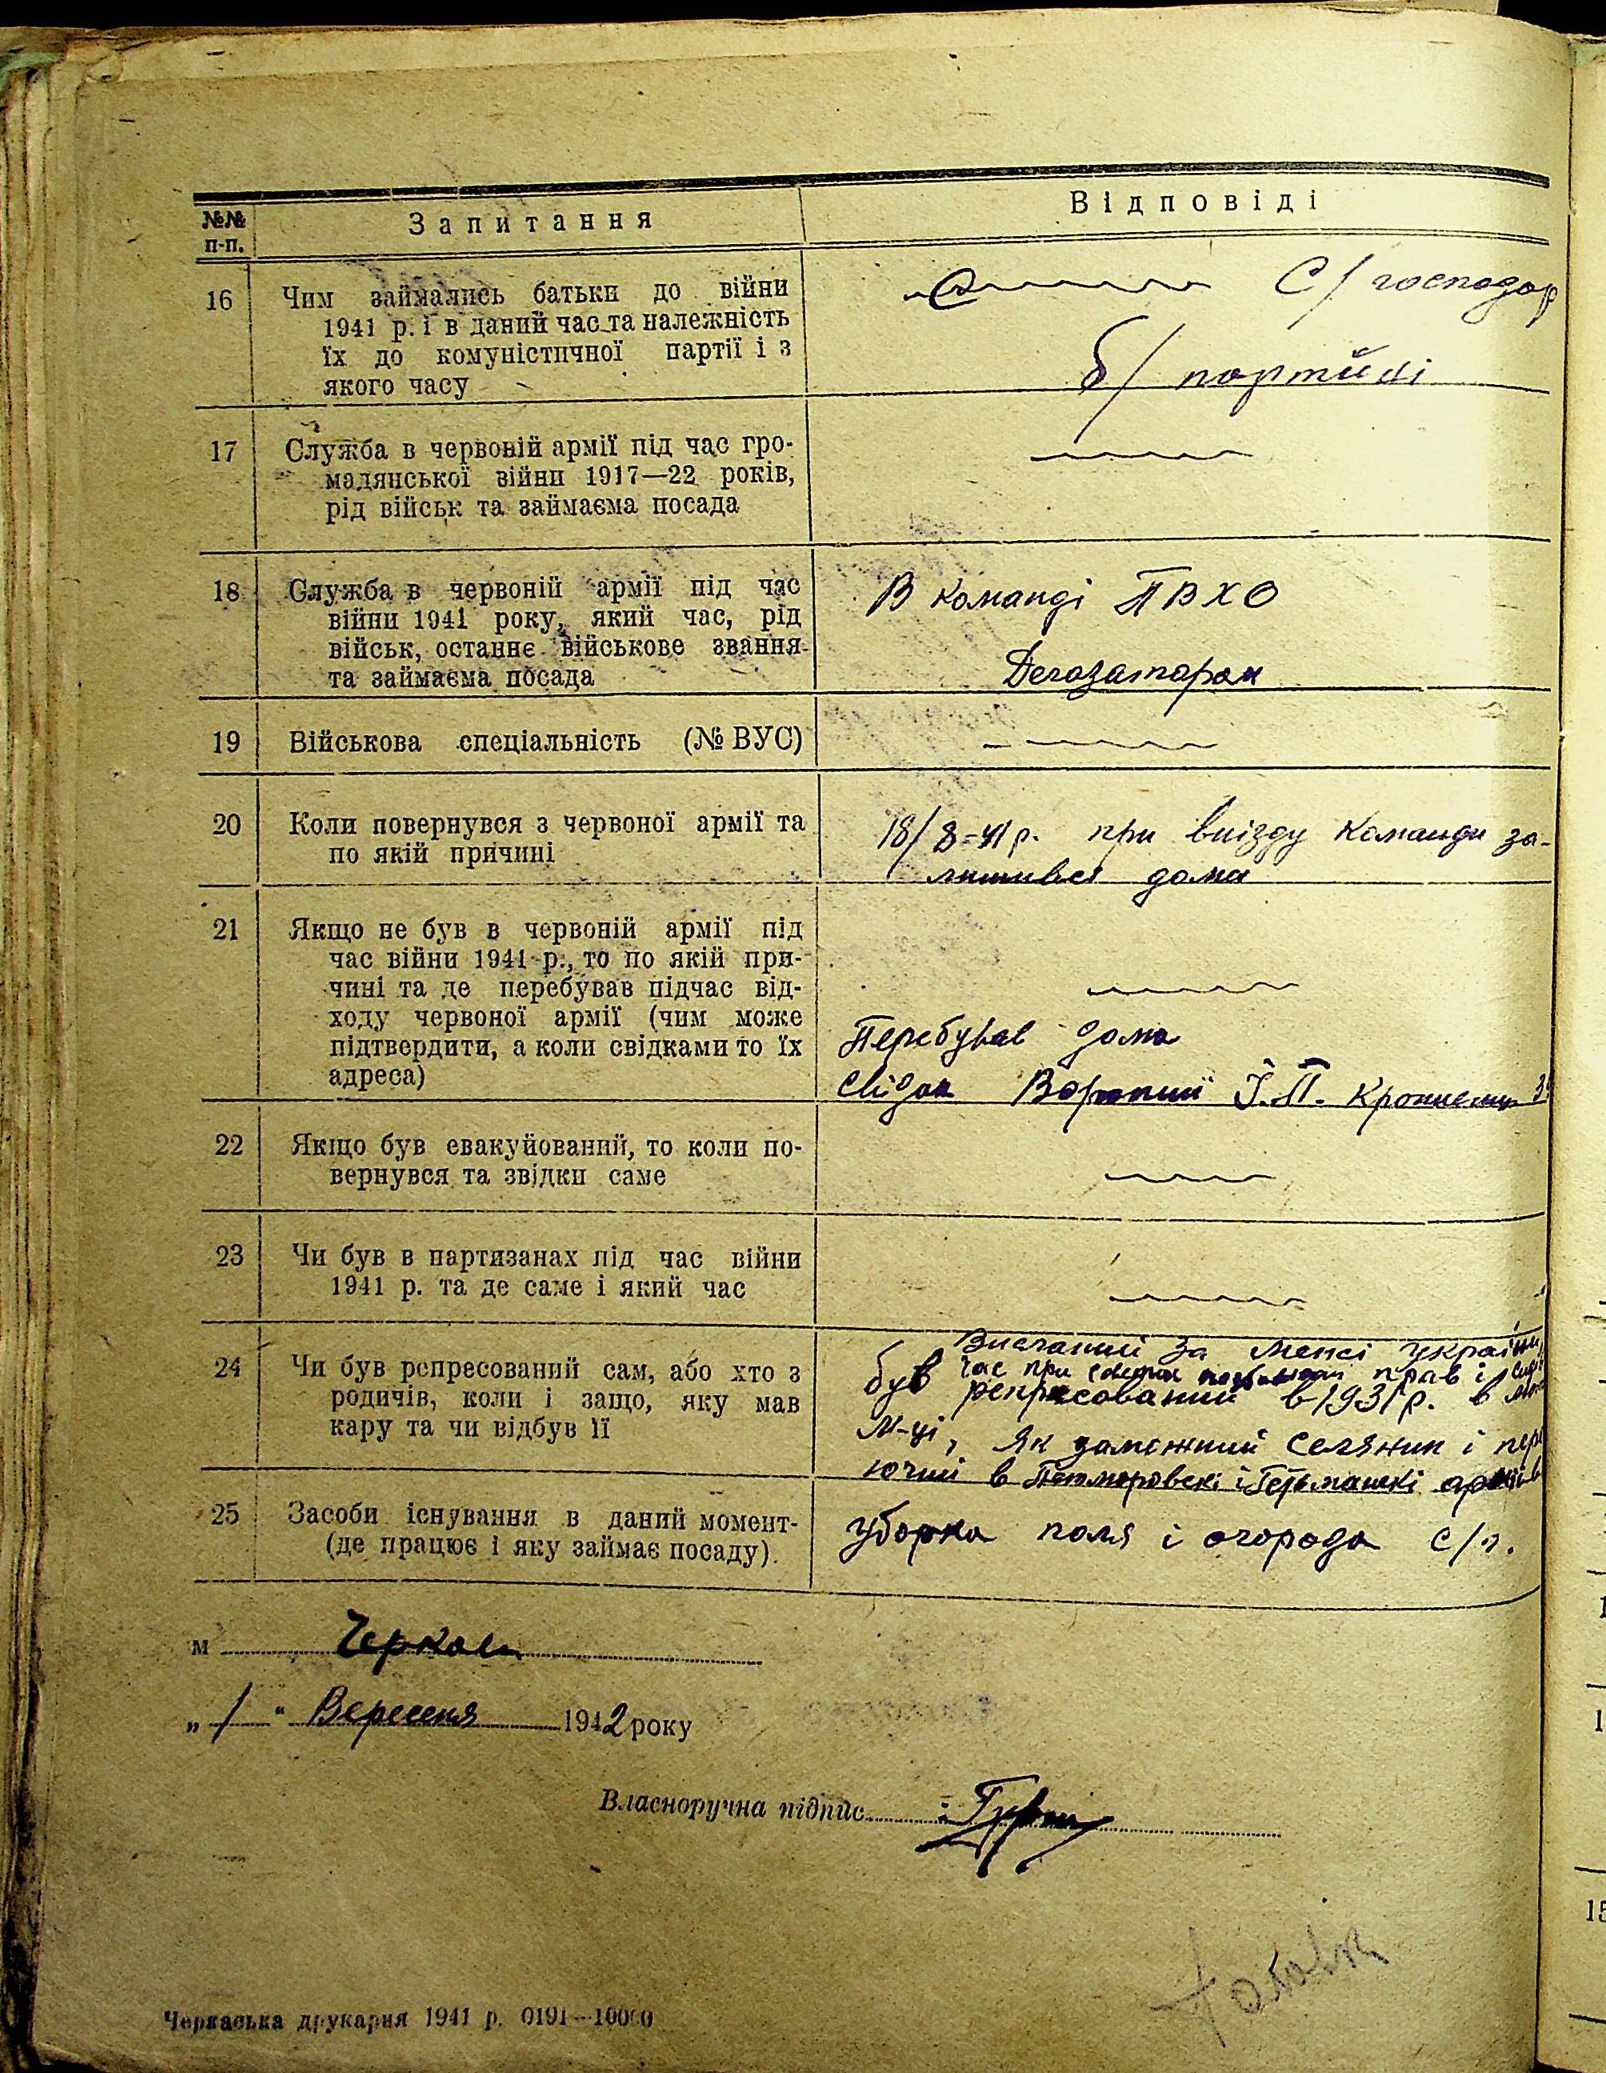 №№ п-п. Запитання Відповіді
16 Чим займались батьки до війни
1941 р. і в даний час та належність
їх до комуністичної партії і з
якого часу
С/господар
б/партійні
17 Служба в червоній армії під час гро-
мадянської війни 1917—22 років,
рід військ та займаєма посада
18 Служба в червоній армії під час
війни 1941 року, який час, рід
військ, останнє військове звання
та займаєма посада
В команді ПВХО
Дегазатором
19 Військова спеціальність (№ ВУС)
20 Коли повернувся з червоної армії та
по якій причині
18/8-41р. при виїзду команди за-
лишився дома
21 Якщо не був в червоній армії під
час війни 1941 р., то по якій при-
чині та де перебував підчас від-
ходу червоної армії (чим може
підтвердити, а коли свідками то їх
адреса)
Перебував дома
свідок І.П.
22 Якщо був евакуйований, то коли по-
вернувся та звідки саме
23 Чи був в партизанах під час війни
1941 р. та де саме і який час
24 Чи був репресований сам, або хто з
родичів, коли і защо, яку мав
кару та чи відбув її
Висланий за межі України
час при прав і
був репресований в 1931р. в
м-ці, як заможний селянин і
ючий в Петлюровскі і Гетьманскі армії
25 Засоби існування в даний момент
(де працює і яку займає посаду)
уборка поля і огорода с/г.
м Черкаси
„ 1 “ Вересня 1942 року
Власноручна підпис
Черкаська друкарня 1941 р. 0191—10000
15